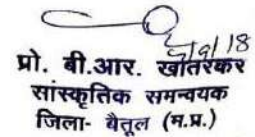 5/9/18
प्रो. बी.आर. खातरकर
सांस्कृतिक समन्वयक
जिला- बैतूल (म.प्र.)